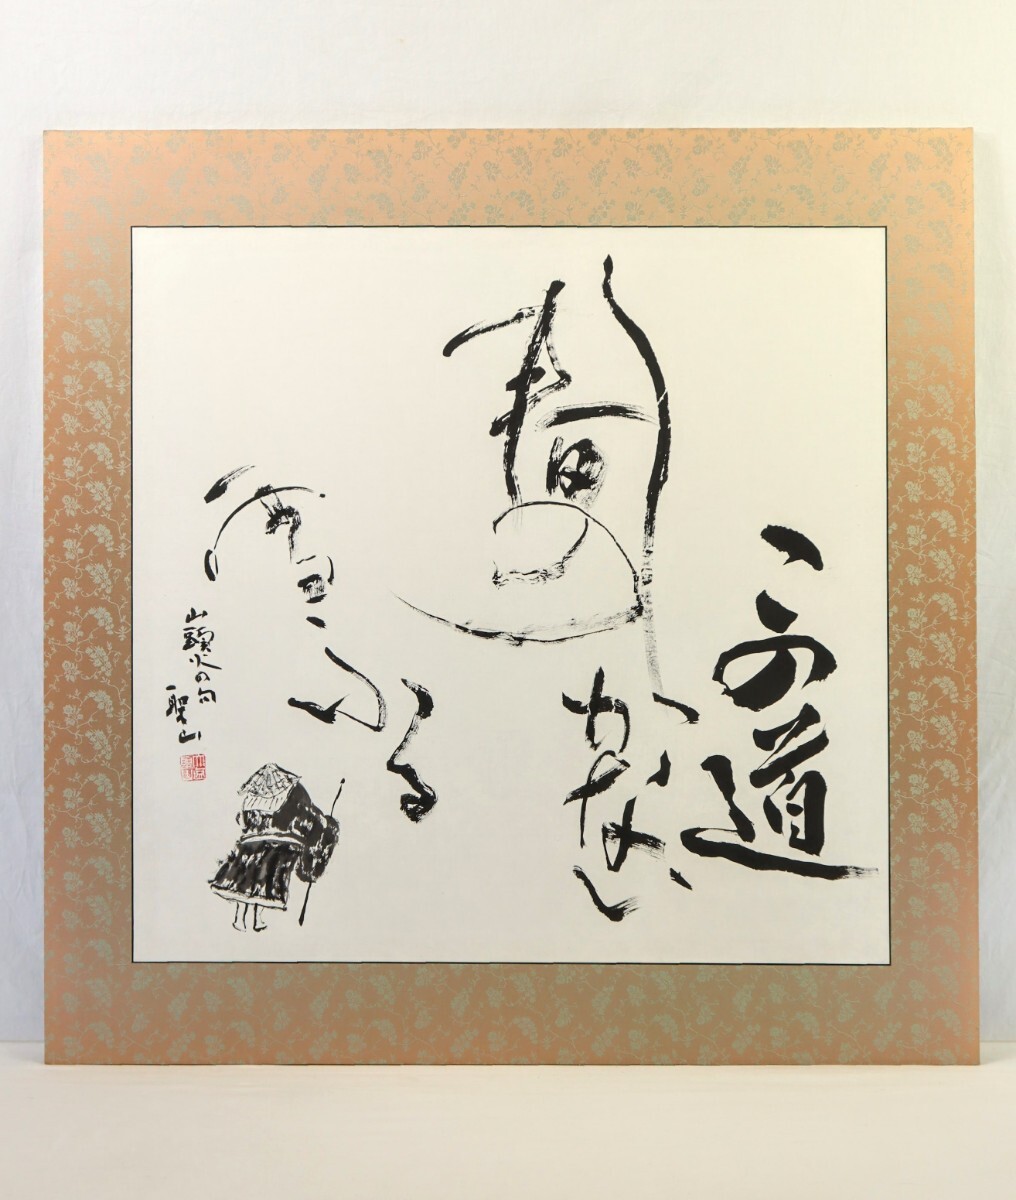 この道
しかない
春の
雪ふる
山頭火の句
聖山